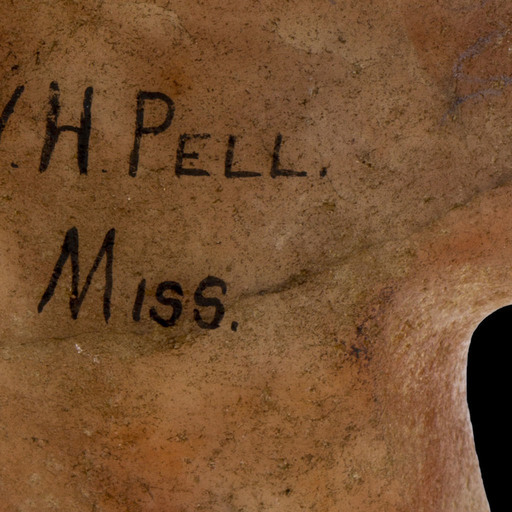 H. PELL.
MISS.